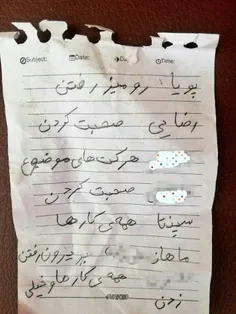 Subject: Date: Time:
پویا رو میز رفتن
رضایی صحبت کردن
حرکت های موضوع
صحبت کردن
سپنتا همه ی کارها
ماهان بیرون رفتن
همه ی کارها و خیلی
زدن